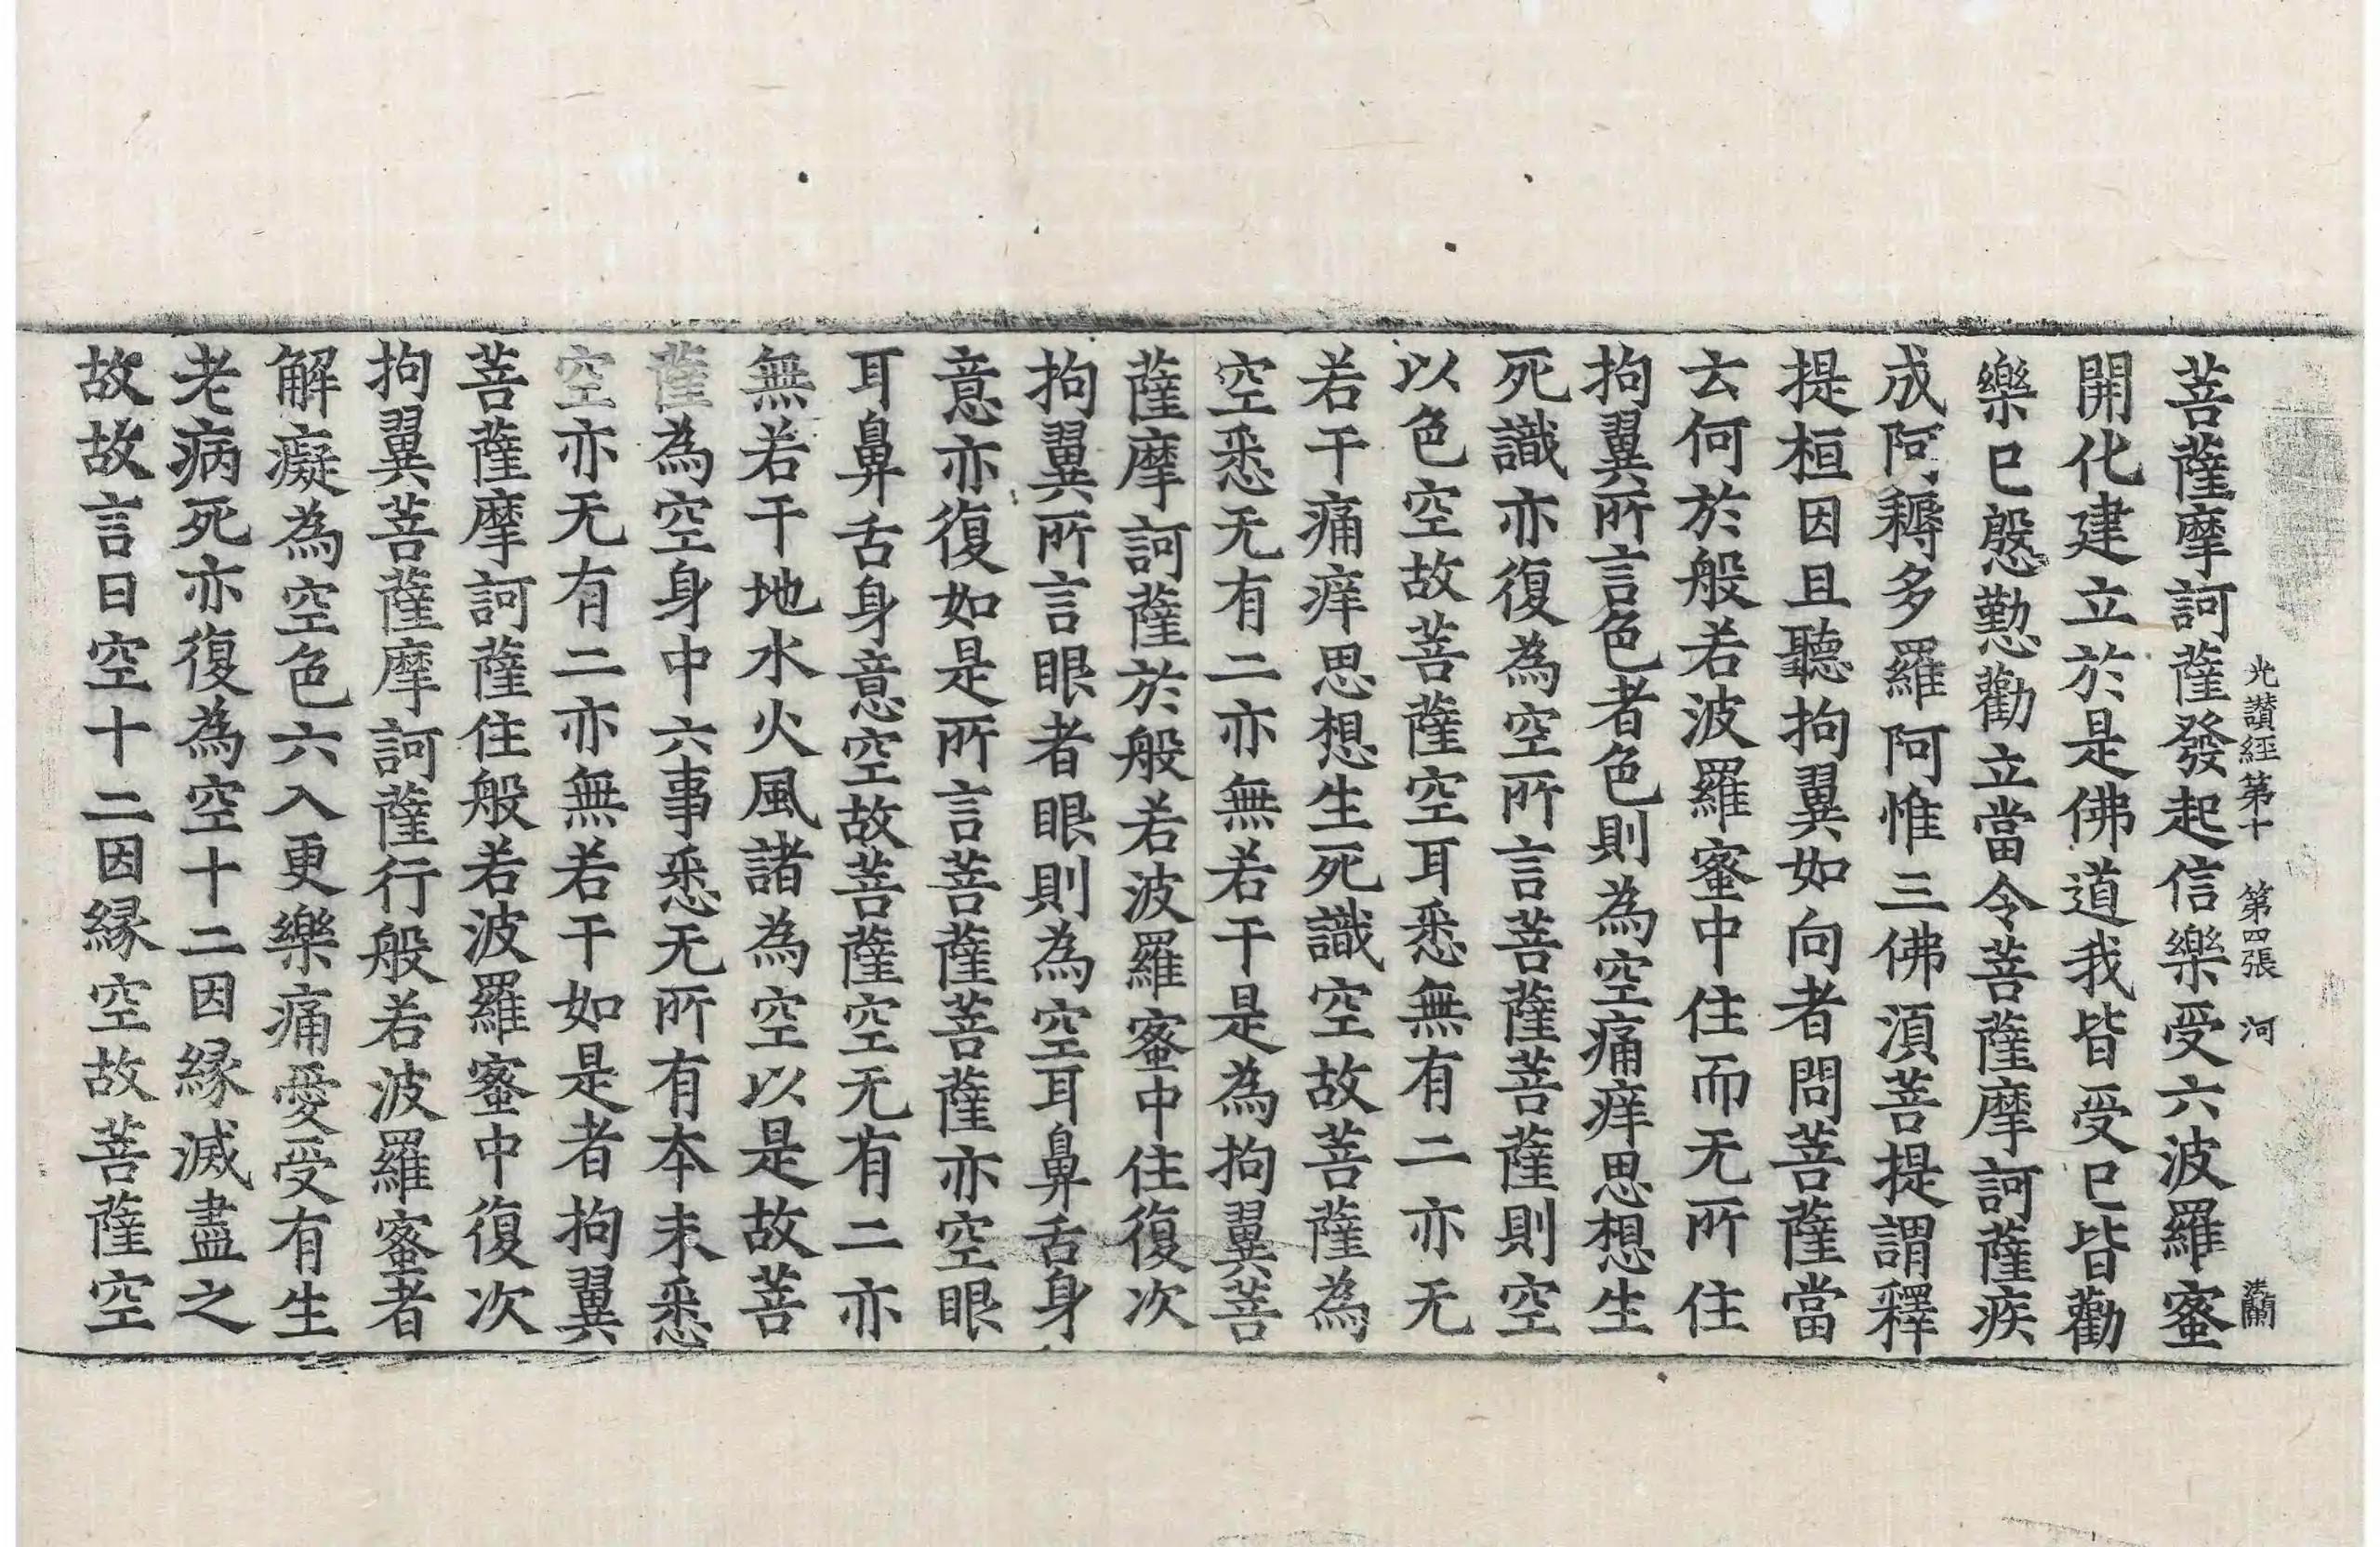 光讚經第十 第四張 河
菩薩摩訶薩發起信樂受六波羅蜜
開化建立於是佛道我皆受已皆勸
樂已慇懃勸立當令菩薩摩訶薩疾
成阿耨多羅阿惟三佛湏菩提謂釋
提桓因且聽拘翼如向者問菩薩當
云何於般若波羅蜜中住而无所住
拘翼所言色者色則為空痛痒思想生
死識亦復為空所言菩薩菩薩則空
以色空故菩薩空耳悉無有二亦无
若干痛痒思想生死識空故菩薩為
空悉无有二亦無若干是為拘翼菩
薩摩訶薩於般若波羅蜜中住復次
拘翼所言眼者眼則為空耳鼻舌身
意亦復如是所言菩薩菩薩亦空眼
耳鼻舌身意空故菩薩空无有二亦
無若干地水火風諸為空以是故菩
薩為空身中六事悉无所有本末悉
空亦无有二亦無若干如是者拘翼
菩薩摩訶薩住般若波羅蜜中復次
拘翼菩薩摩訶薩行般若波羅蜜者
解癡為空色六入更樂痛愛受有生
老病死亦復為空十二因緣滅盡之
故故言曰空十二因緣空故菩薩空